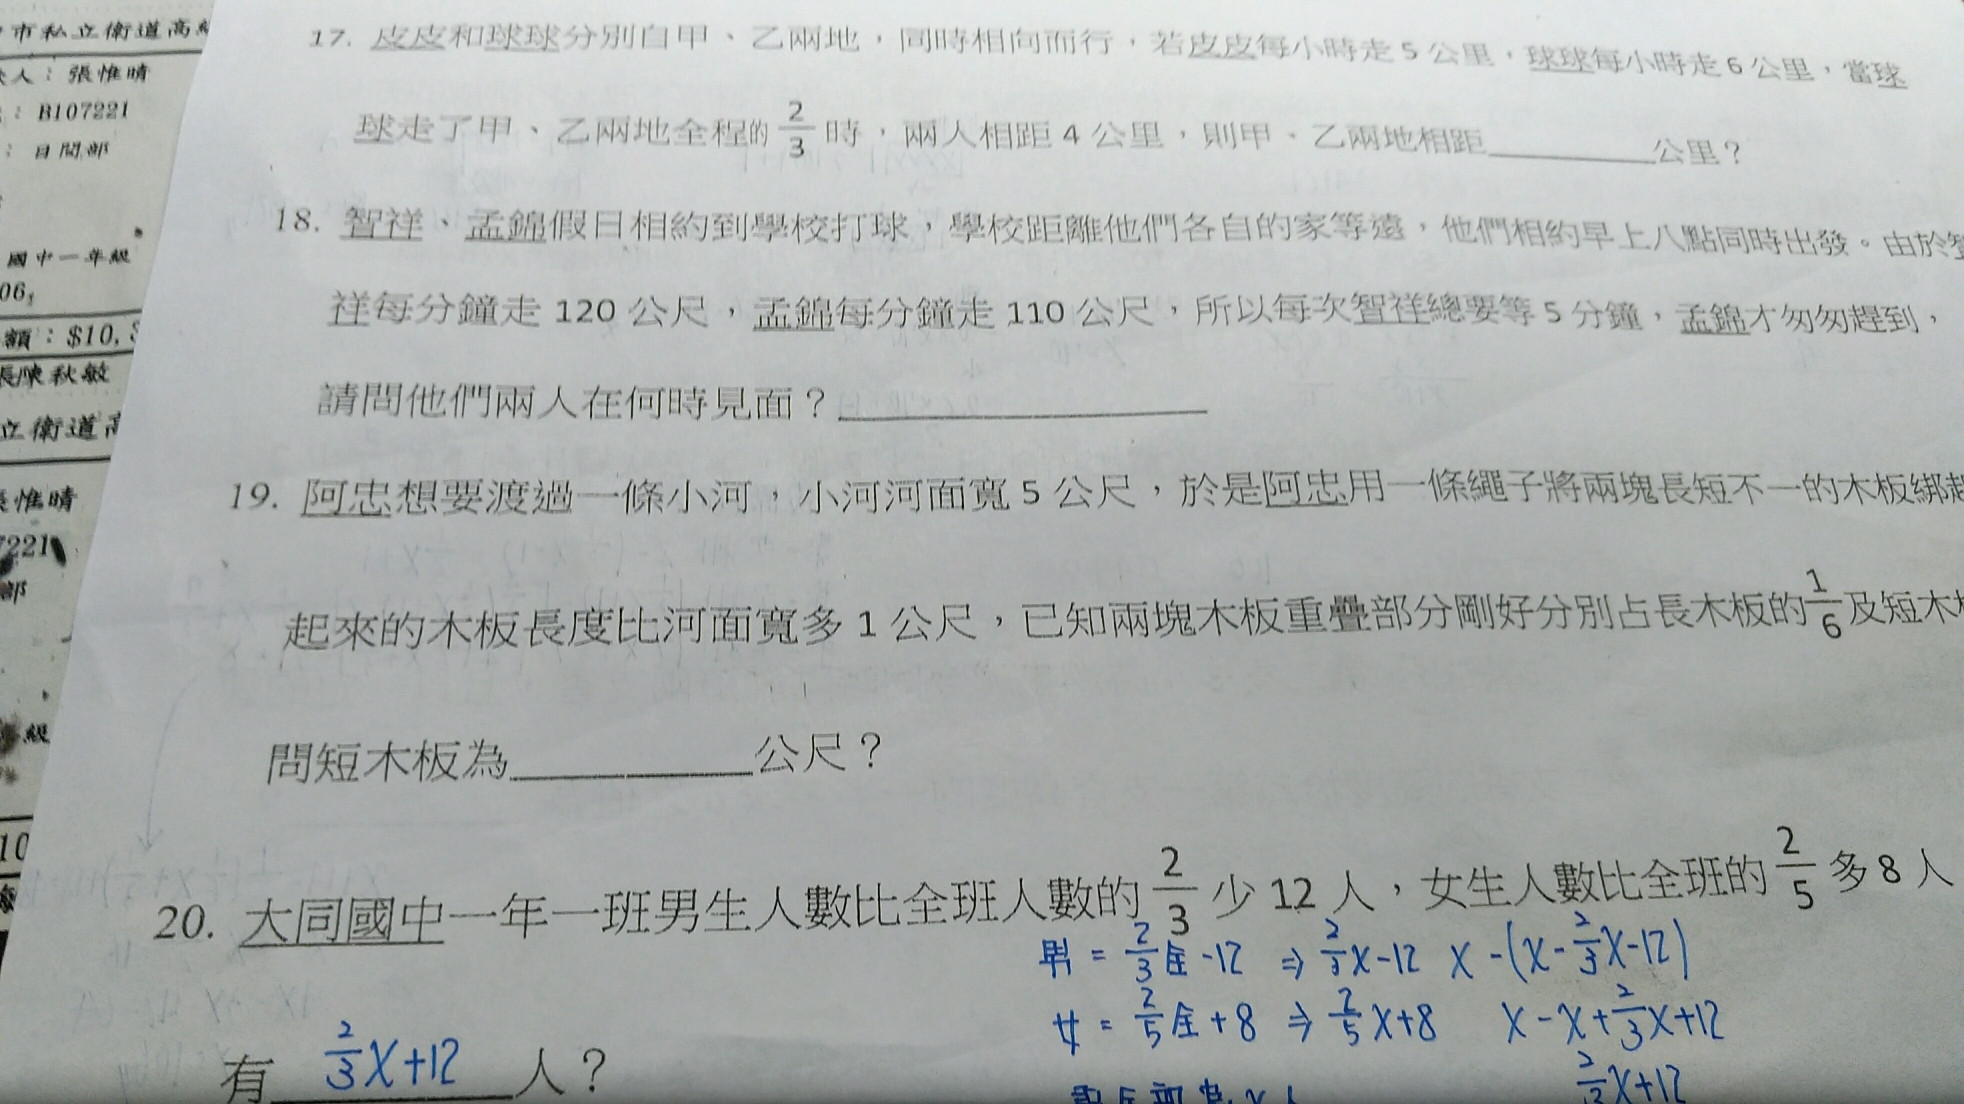 市私立衛道高
人：張惟晴
：B107221
：日間部
國中一年級
06,
額：$10,
張陳秋敏
立衛道高
張惟晴
7221
部
級
10
17. 皮皮和球球分別自甲、乙兩地，同時相向而行，若皮皮每小時走 5 公里，球球每小時走 6 公里，當球
球走了甲、乙兩地全程的 2/3 時，兩人相距 4 公里，則甲、乙兩地相距________公里？
18. 智祥、孟錦假日相約到學校打球，學校距離他們各自的家等遠，他們相約早上八點同時出發。由於智
祥每分鐘走 120 公尺，孟錦每分鐘走 110 公尺，所以每次智祥總要等 5 分鐘，孟錦才匆匆趕到，
請問他們兩人在何時見面？________
19. 阿忠想要渡過一條小河，小河河面寬 5 公尺，於是阿忠用一條繩子將兩塊長短不一的木板綁起
起來的木板長度比河面寬多 1 公尺，已知兩塊木板重疊部分剛好分別占長木板的 1/6 及短木板
問短木板為________公尺？
20. 大同國中一年一班男生人數比全班人數的 2/3 少 12 人，女生人數比全班的 2/5 多 8 人
男 = 2/3 全 -12 ⇒ 2/3 X-12 X -(X - 2/3 X-12)
女 = 2/5 全 + 8 ⇒ 2/5 X+8 X - X + 2/3 X+12
有 2/3 X+12 人？
2/3 X+12